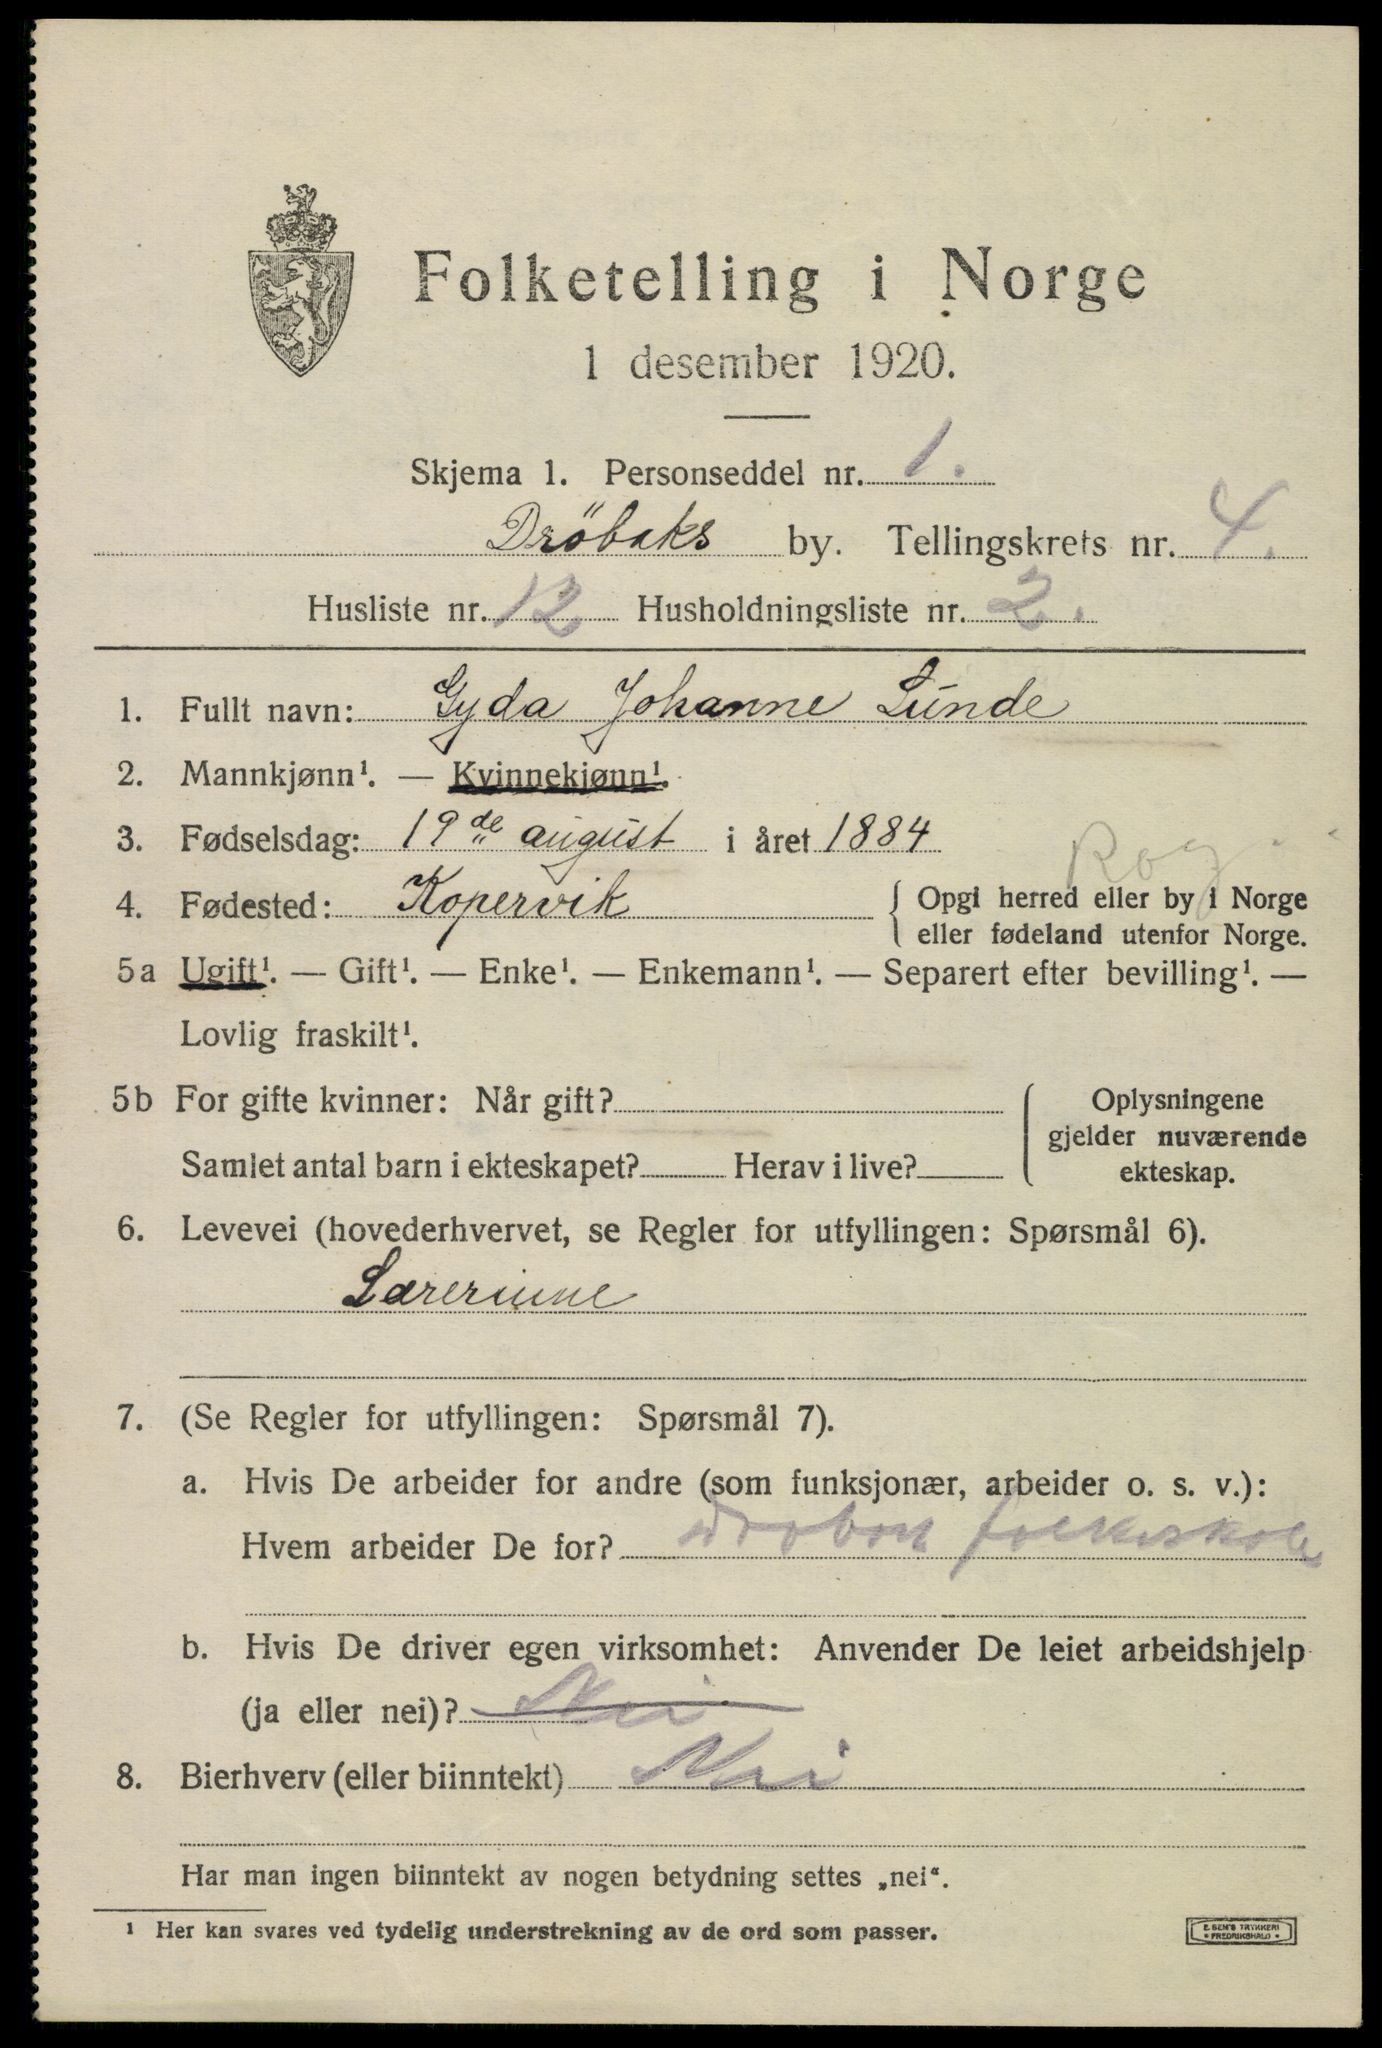 Folketelling i Norge
1 desember 1920.
Skjema 1. Personseddel nr. 1.
Dröbaks by. Tellingskrets nr. 4.
Husliste nr. 12 Husholdningsliste nr. 2.
1. Fullt navn: Gyda Johanne Lunde
2. Mannkjønn¹. — Kvinnekjønn¹.
3. Fødselsdag: 19de august i året 1884
Rog.
4. Fødested: Kopervik { Opgi herred eller by i Norge
eller fødeland utenfor Norge.
5a Ugift¹. — Gift¹. — Enke¹. — Enkemann¹. — Separert efter bevilling¹. —
Lovlig fraskilt¹.
5b For gifte kvinner: Når gift?
Samlet antal barn i ekteskapet? Herav i live?
Oplysningene
gjelder nuværende
ekteskap.
6. Levevei (hovederhvervet, se Regler for utfyllingen: Spørsmål 6).
Lærerinne
7. (Se Regler for utfyllingen: Spørsmål 7).
a. Hvis De arbeider for andre (som funksjonær, arbeider o. s. v.):
Hvem arbeider De for? Drøbak folkeskole
b. Hvis De driver egen virksomhet: Anvender De leiet arbeidshjelp
(ja eller nei)? Nei
8. Bierhverv (eller biinntekt) Nei
Har man ingen biinntekt av nogen betydning settes „nei“.
¹ Her kan svares ved tydelig understrekning av de ord som passer.
E. SEM'S TRYKKERI
FREDRIKSHALD